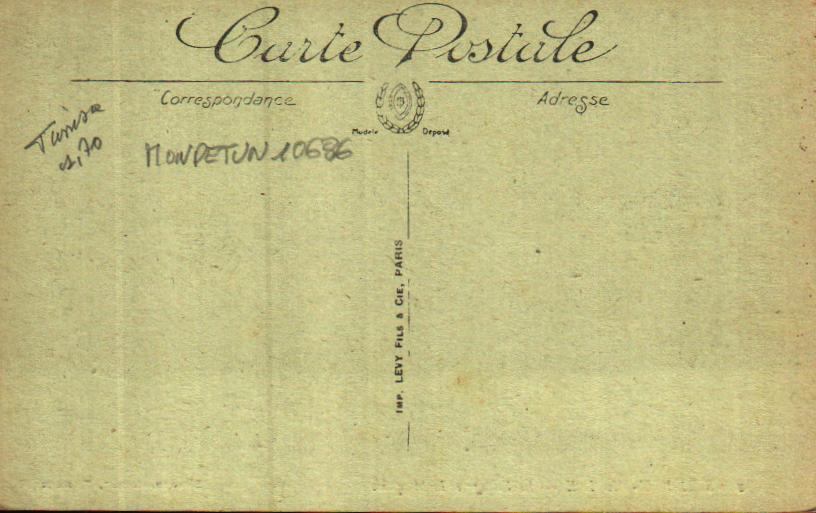 Carte Postale
Correspondance
Adresse
Modèle Déposé
Tunisie
1,70
MONDETUN10686
IMP. LEVY FILS & CIE, PARIS